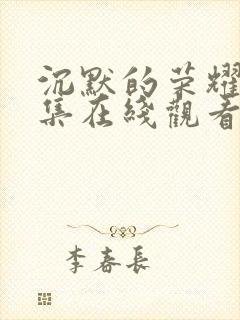 沉默的荣耀
集在綫觀看
李春長